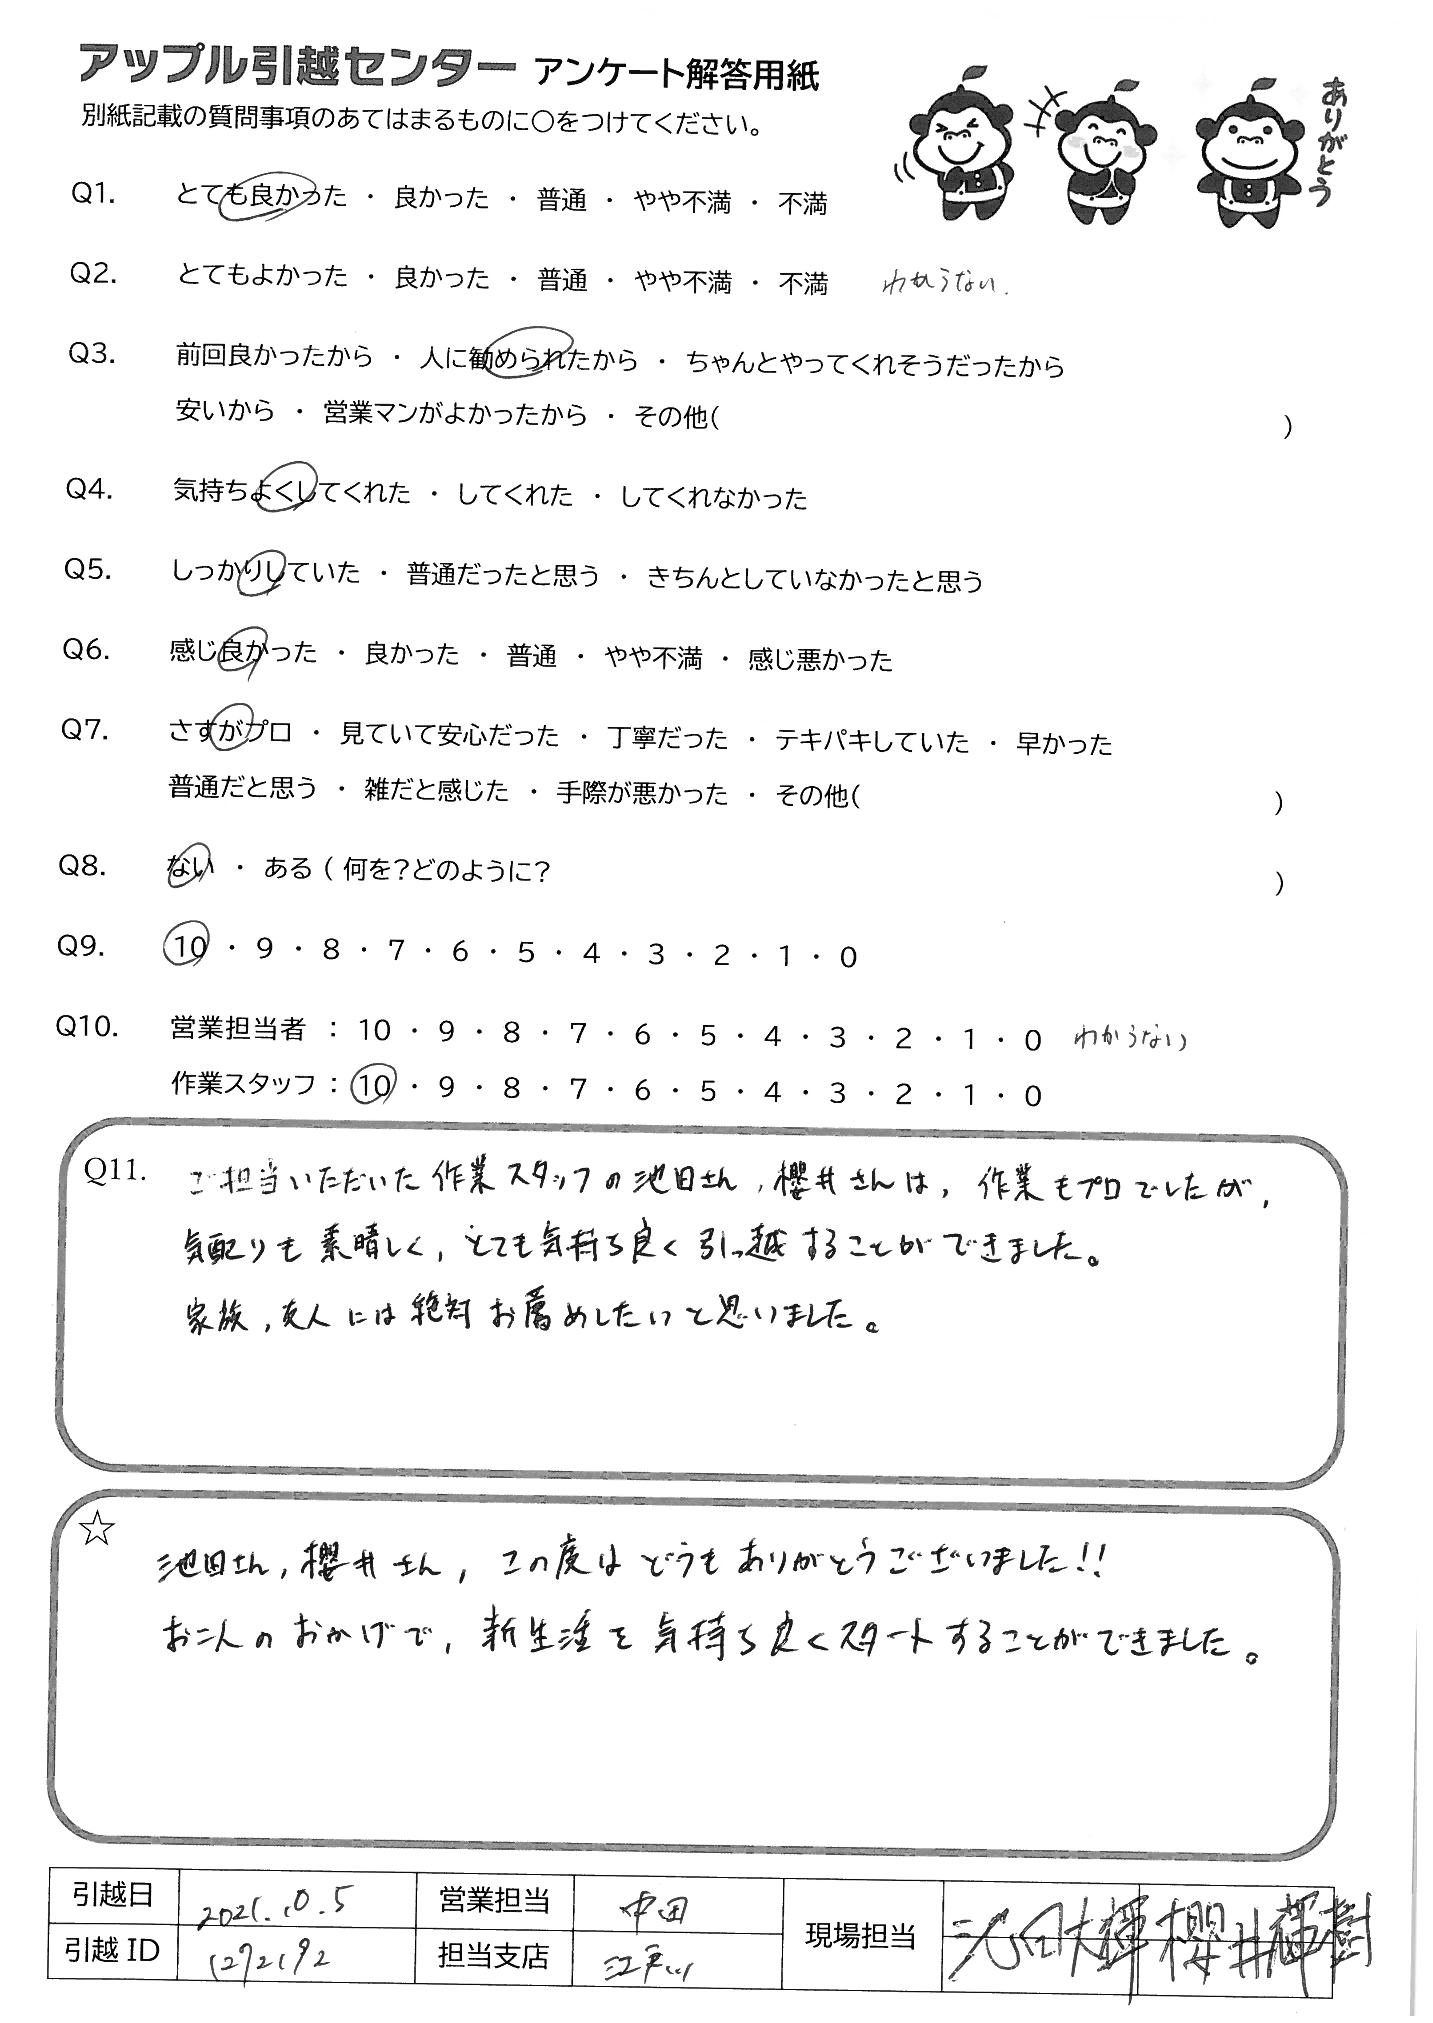 アップル引越センター アンケート解答用紙
別紙記載の質問事項のあてはまるものに〇をつけてください。
ありがとう
Q1. とても良かった ・ 良かった ・ 普通 ・ やや不満 ・ 不満
Q2. とてもよかった ・ 良かった ・ 普通 ・ やや不満 ・ 不満 わからない.
Q3. 前回良かったから ・ 人に勧められたから ・ ちゃんとやってくれそうだったから
安いから ・ 営業マンがよかったから ・ その他( )
Q4. 気持ちよくしてくれた ・ してくれた ・ してくれなかった
Q5. しっかりしていた ・ 普通だったと思う ・ きちんとしていなかったと思う
Q6. 感じ良かった ・ 良かった ・ 普通 ・ やや不満 ・ 感じ悪かった
Q7. さすがプロ ・ 見ていて安心だった ・ 丁寧だった ・ テキパキしていた ・ 早かった
普通だと思う ・ 雑だと感じた ・ 手際が悪かった ・ その他( )
Q8. ない ・ ある ( 何を?どのように? )
Q9. 10 ・ 9 ・ 8 ・ 7 ・ 6 ・ 5 ・ 4 ・ 3 ・ 2 ・ 1 ・ 0
Q10. 営業担当者 : 10 ・ 9 ・ 8 ・ 7 ・ 6 ・ 5 ・ 4 ・ 3 ・ 2 ・ 1 ・ 0 わからない
作業スタッフ : 10 ・ 9 ・ 8 ・ 7 ・ 6 ・ 5 ・ 4 ・ 3 ・ 2 ・ 1 ・ 0
Q11. ご担当いただいた作業スタッフの池田さん,櫻井さんは,作業もプロでしたが,
気配りも素晴しく,とても気持ち良く引っ越することができました。
家族,友人には絶対お薦めしたいと思いました。
☆
池田さん,櫻井さん,この度はどうもありがとうございました!!
お二人のおかげで,新生活を気持ち良くスタートすることができました。
引越日 2021.10.5 営業担当 中田 現場担当 池田大輝 櫻井輝樹
引越 ID 1272192 担当支店 江戸川